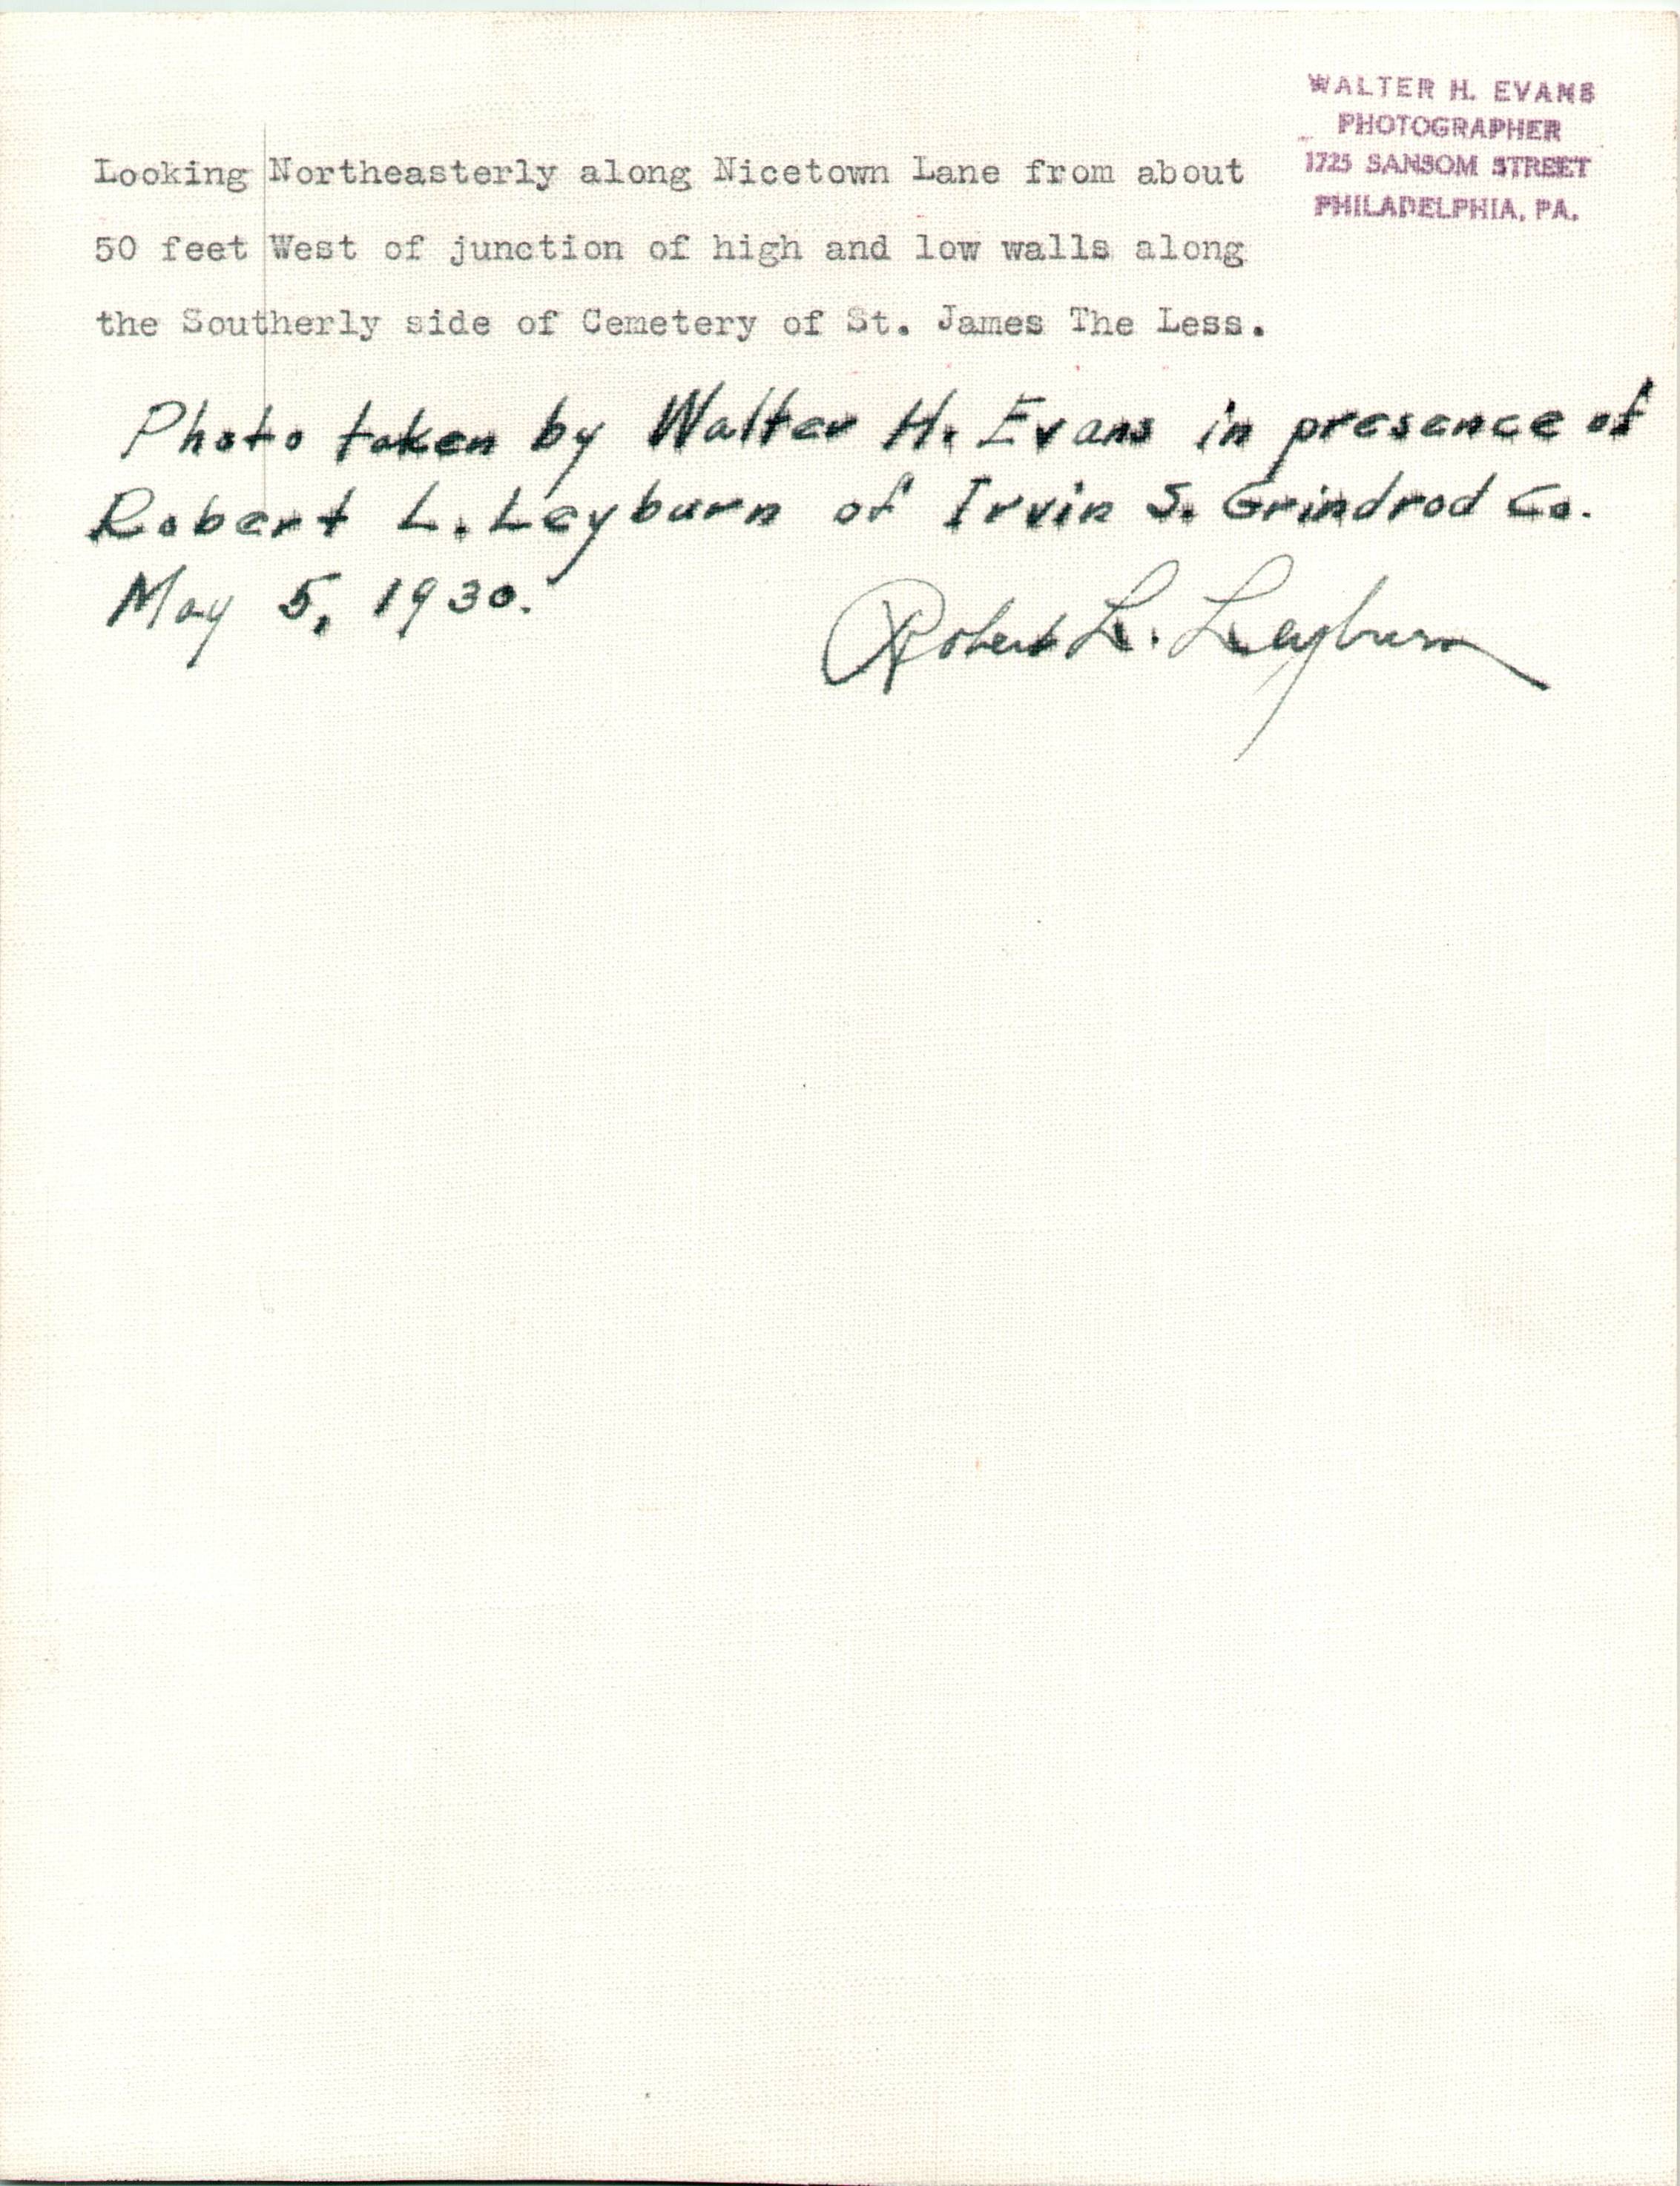 WALTER H. EVANS
PHOTOGRAPHER
1725 SANSOM STREET
PHILADELPHIA, PA.
Looking Northeasterly along Nicetown Lane from about
50 feet West of junction of high and low walls along
the Southerly side of Cemetery of St. James The Less.
Photo taken by Walter H. Evans in presence of
Robert L. Leyburn of Irvin S. Grindrod Co.
May 5, 1930.
Robert L. Leyburn